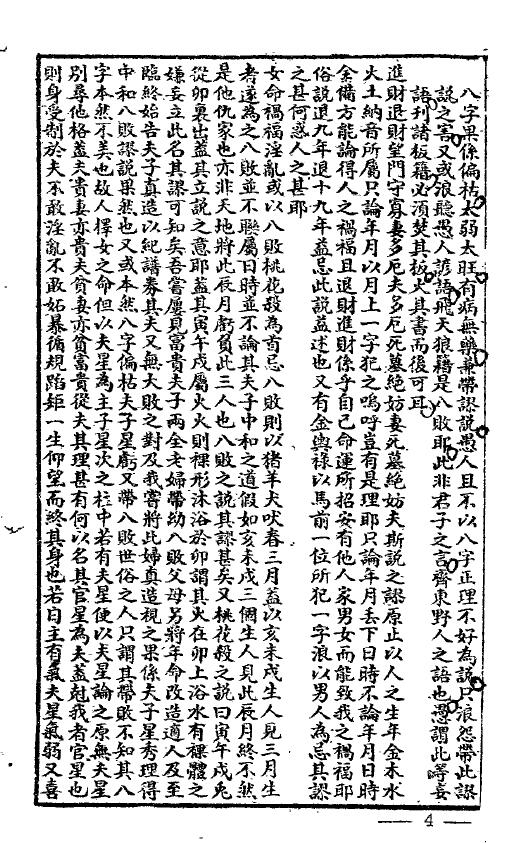 八字果係偏枯太弱太旺有病無藥兼帶謬說愚人且不以八字正理不好為說只浪怨帶此謬
說之害又或浪聽愚人諺語飛天狼籍是八敗耶此非君子之言齊東野人之語也愚謂此等妄
語刊諸板籍必須焚其板火其書而後可耳
進財退財望門守寡妻多厄夫多厄死墓絕妨妻死墓絕妨夫斯說之謬原止以人之生年金木水
火土納音所屬只論年月以月上一字犯之嗚呼豈有是理耶只論年月丟下日時不論年月日時
全備方能論得人之禍福且退財進財係乎自己命運所招安有他人家男女而能致我之禍福耶
俗說退九年退十九年益忌此說益述也又有金輿祿以馬前一位所犯一字浪以男人為忌其謬
之甚何惑人之甚耶
女命禍福淫亂或以八敗桃花殺為首忌八敗則以猪羊犬吠春三月蓋以亥未戌生人見三月生
者遂為之八敗並不聯屬日時並不論其夫子中和之道假如亥未戌三個生人見此辰月終不然
是他仇家也亦非天地將此辰月虧負此三人也八敗之說其謬甚矣又桃花殺之說曰寅午戌兎
從卯裏出蓋其立說之意耶蓋其寅午戌屬火火則裸形沐浴於卯謂其火在卯上浴水有裸體之
嫌妄立此名其謬可知矣吾嘗屢見富貴夫子兩全老婦帶幼八敗父母另將年命改造適人及至
臨終始告夫子真造以紀譜券其夫又無大敗之對及我嘗將此婦真造視之果係夫子星秀理得
中和八敗謬說果然也又或本然八字偏枯夫子星虧又帶八敗世俗之人只謂其帶敗不知其八
字本然不美也故人擇女之命但以夫星為主子星次之柱中若有夫星便以夫星論之原無夫星
別尋他格蓋夫貴妻亦貴夫貧妻亦貧富貴從夫其理甚有何以名其官星為夫蓋尅我者官星也
則身受制於夫不敢淫亂不敢妬暴循規蹈矩一生仰望而終其身也若日主有氣夫星氣弱又喜
— 4 —